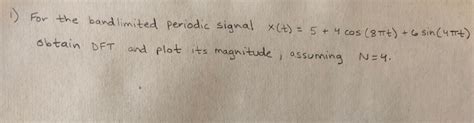 i) For the bandlimited periodic signal x(t) = 5 + 4 cos (8πt) + 6 sin(4πt)
obtain DFT and plot its magnitude, assuming N=4.